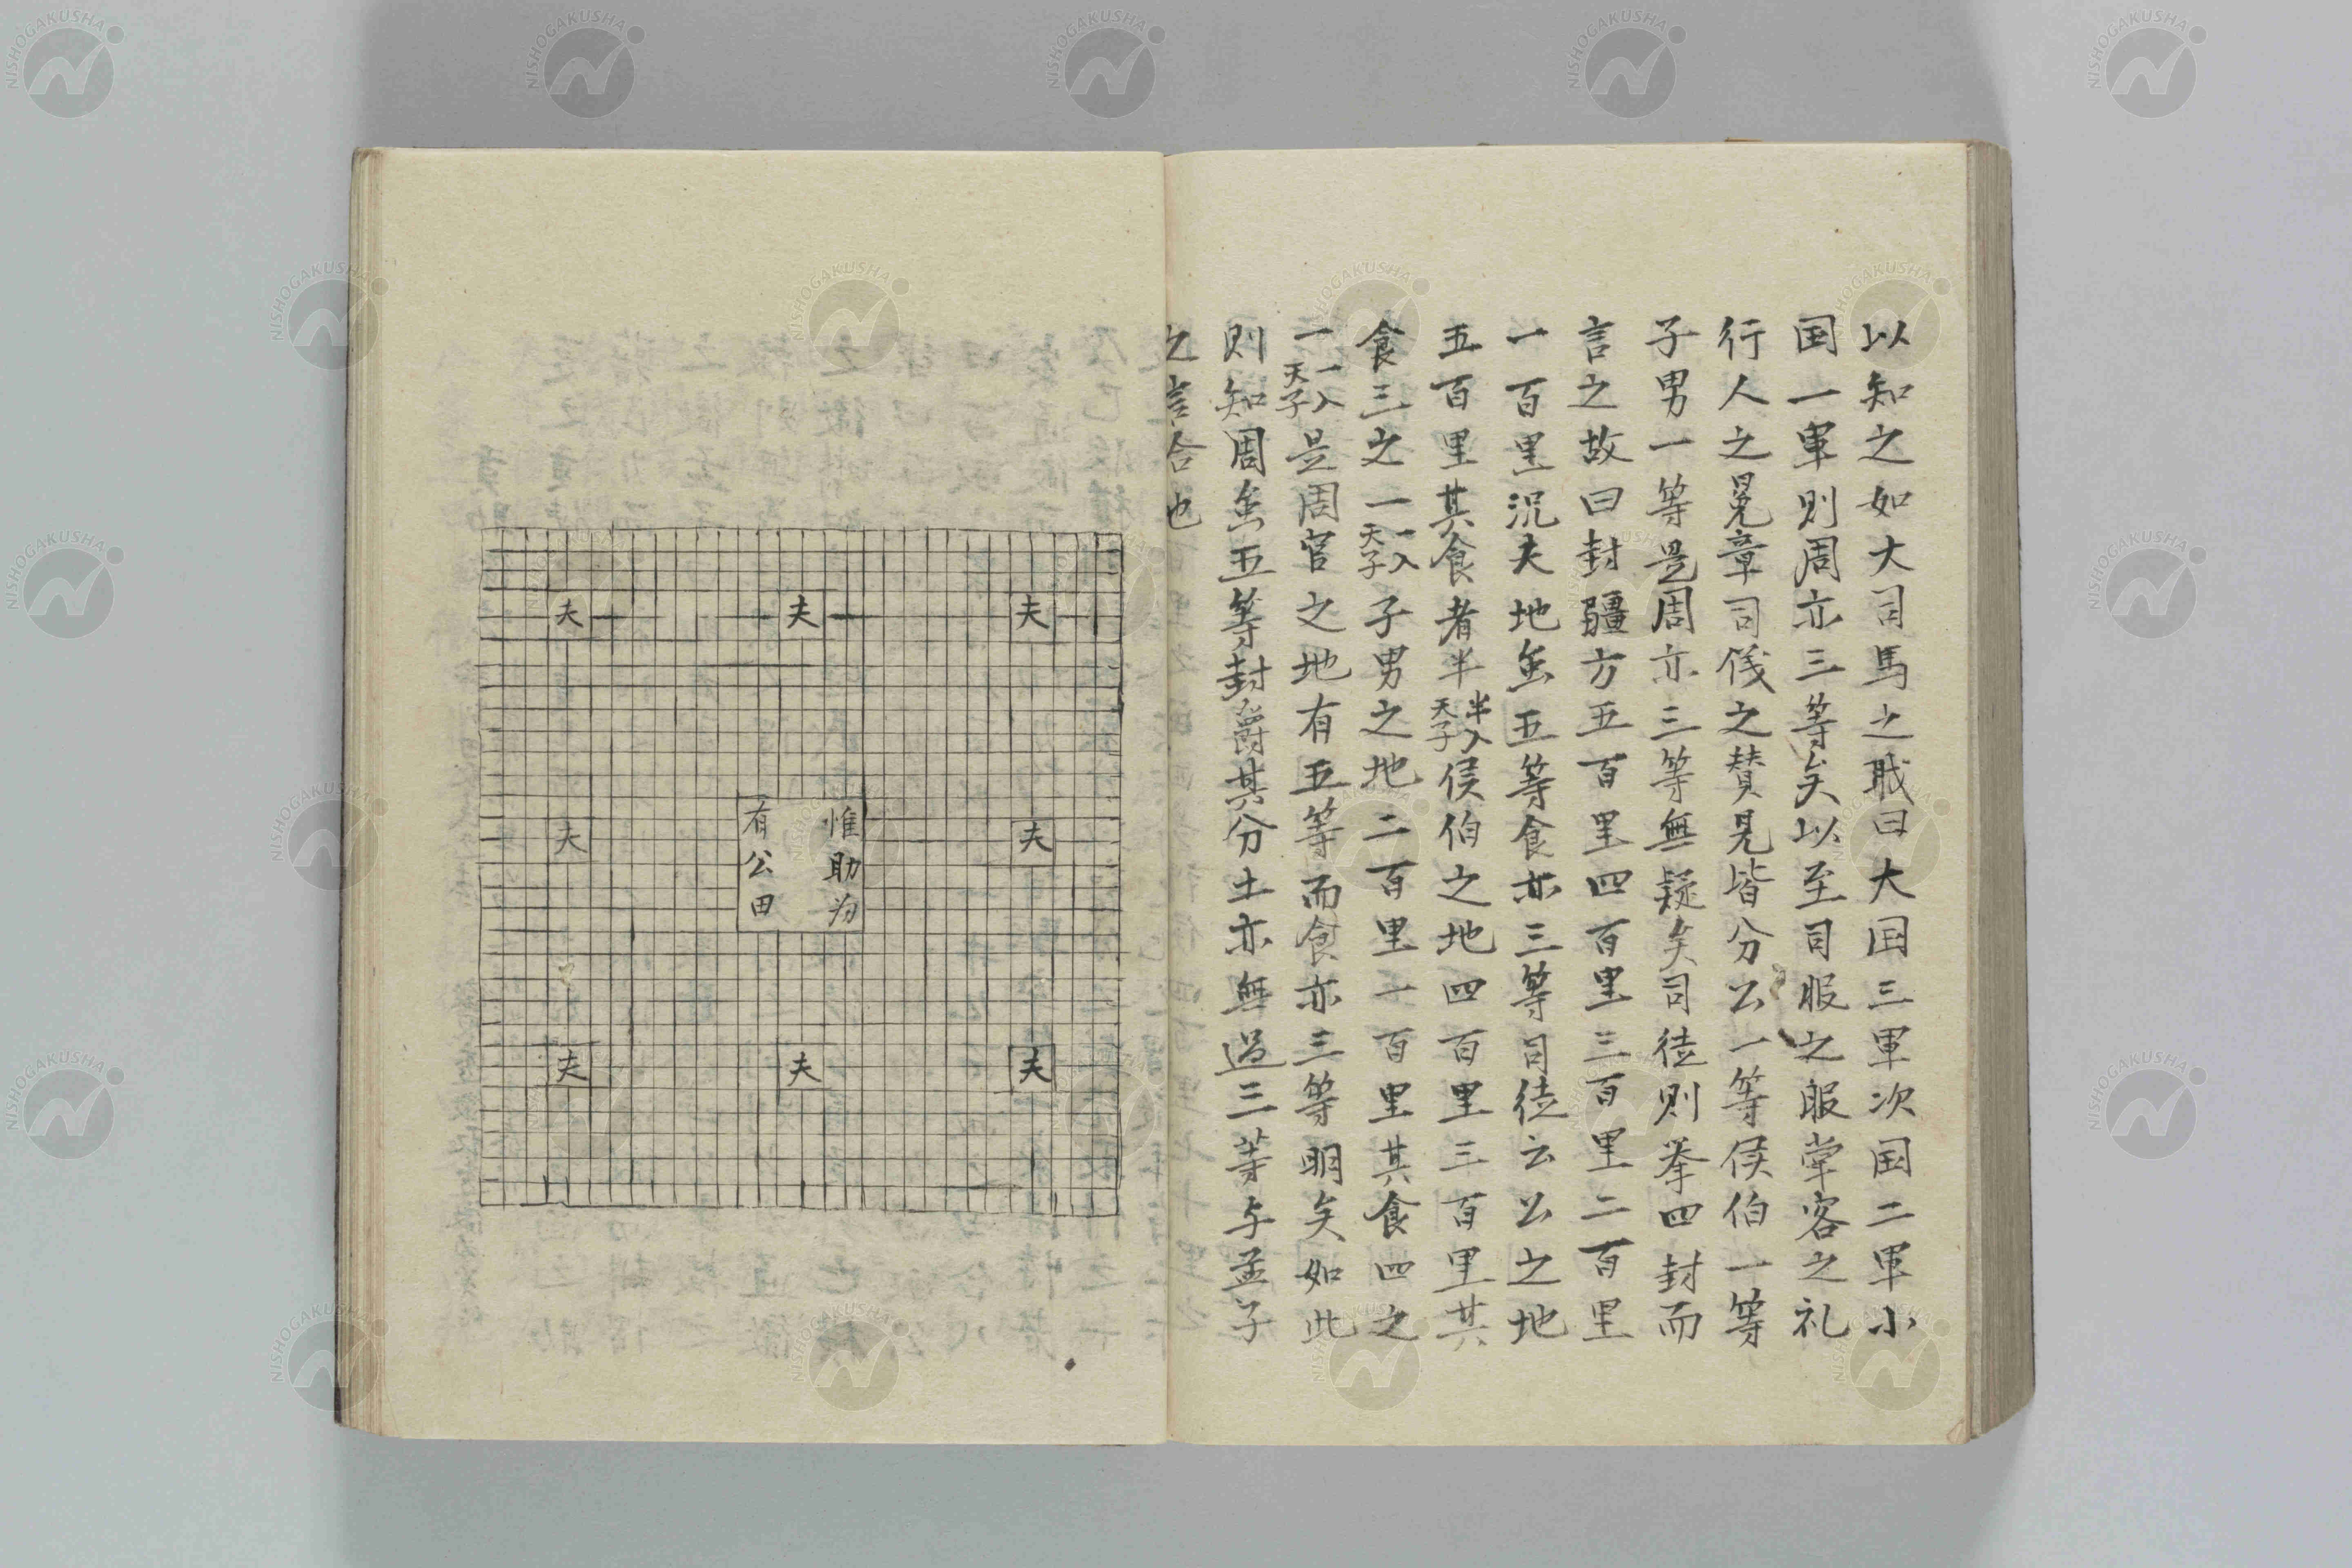 以知之如大司馬之職曰大国三軍次国二軍小
国一軍則周亦三等矣以至司服之服掌客之礼
行人之冕章司儀之賛見皆分公一等侯伯一等
子男一等是周亦三等無疑矣司徒則挙四封而
言之故曰封疆方五百里四百里三百里二百里
一百里況夫地虽五等食亦三等司徒云公之地
五百里其食者半半入天子侯伯之地四百里三百里其
食三之一一入天子子男之地二百里一百里其食四之
一一入天子是周官之地有五等而食亦三等明矣如此
則知周虽五等封爵其分土亦無過三等与孟子
之言合也
夫 夫 夫
夫 惟助为有公田 夫
夫 夫 夫
NISHOGAKUSHA